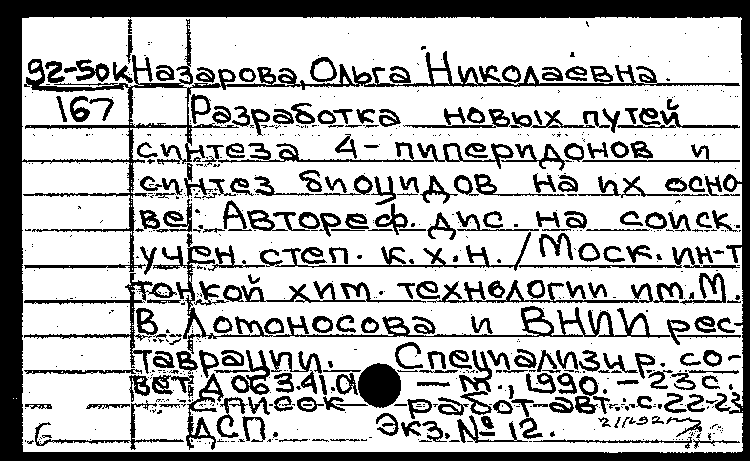 92-50к Назарова, Ольга Николаевна.
167 Разработка новых путей
синтеза 4-пиперидонов и
синтез биоцидов на их осно-
ве: Автореф. дис. на соиск.
учен. степ. к.х.н. /Моск. ин-т
тонкой хим. технологии им. М.
В. Ломоносова и ВНИИ рес-
таврации. Специализир. со-
вет Д 063.41.0 — М., 1990. — 23 с.
Список работ авт.: с. 22-23
ДСП. Экз. № 12.
б